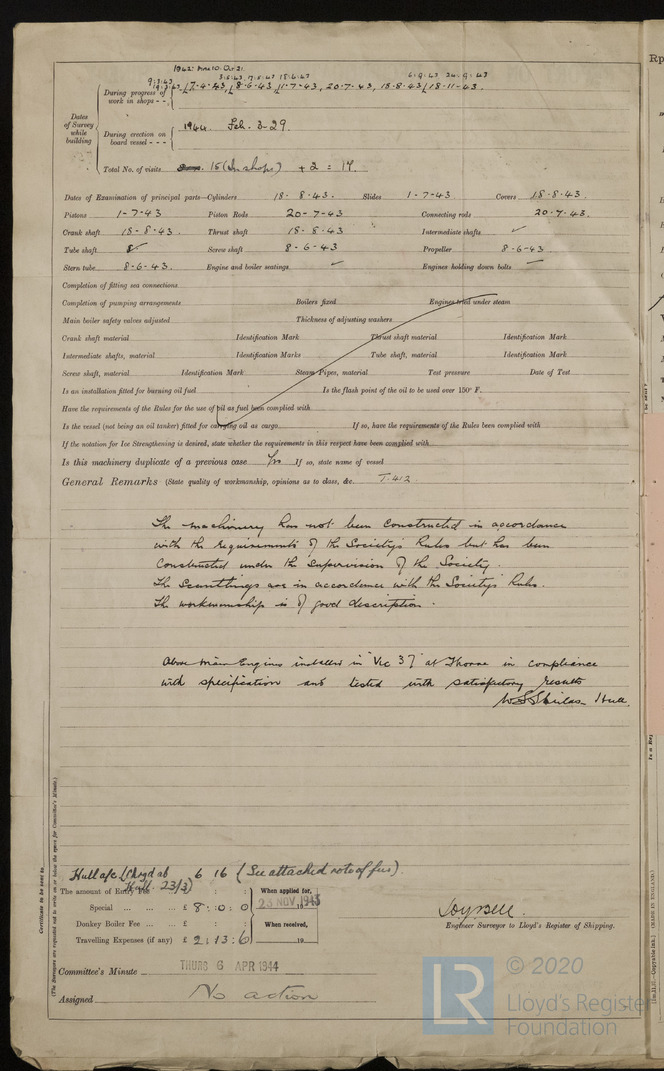 1942: Nov 10. Dec 21.
3·5·43 17·5·43 18·6·43 6·9·43 24·9·43
9·3·43
During progress of work in shops - - 17-4-43, 18-6-43, 1-7-43, 20-7-43, 18-8-43, 18-11-43.
Dates of Survey while building
During erection on board vessel - - - 1944. Feb. 3-29.
Total No. of visits 15 (In shops) + 2 = 17.
Dates of Examination of principal parts—Cylinders 18-8-43. Slides 1-7-43 Covers 18·8·43
Pistons 1-7-43 Piston Rods 20-7-43 Connecting rods 20.7.43.
Crank shaft 18-8-43. Thrust shaft 18-8-43 Intermediate shafts ✓
Tube shaft Screw shaft 8-6-43 Propeller 8-6-43
Stern tube 8-6-43. Engine and boiler seatings Engines holding down bolts
Completion of fitting sea connections
Completion of pumping arrangements Boilers fixed Engines tried under steam
Main boiler safety valves adjusted Thickness of adjusting washers
Crank shaft material Identification Mark Thrust shaft material Identification Mark
Intermediate shafts, material Identification Marks Tube shaft, material Identification Mark
Screw shaft, material Identification Mark Steam Pipes, material Test pressure Date of Test
Is an installation fitted for burning oil fuel Is the flash point of the oil to be used over 150° F.
Have the requirements of the Rules for the use of oil as fuel been complied with
Is the vessel (not being an oil tanker) fitted for carrying oil as cargo If so, have the requirements of the Rules been complied with
If the notation for Ice Strengthening is desired, state whether the requirements in this respect have been complied with
Is this machinery duplicate of a previous case Yes If so, state name of vessel
General Remarks (State quality of workmanship, opinions as to class, &c. T.412
The machinery has not been constructed in accordance
with the requirements of the Society's Rules but has been
constructed under the supervision of the Society.
The Scantlings are in accordance with the Society's Rules.
The workmanship is of good description.
Above Main Engines installed in "Vic 37" at Thorne in compliance
with specification and tested with satisfactory results
Hull.
Hull a/c (Chgd ab 6 16 (See attached note of fees).
Hull. 23/3)
The amount of Entry Fee : : When applied for,
Special ... ... ... £ 8 : 0 : 0 23 NOV 1943
Donkey Boiler Fee ... £ : : When received,
Travelling Expenses (if any) £ 2 : 13 : 6 19
Engineer Surveyor to Lloyd's Register of Shipping.
Committee's Minute THURS 6 APR 1944
Assigned No action
Certificate to be sent to
(The Surveyors are requested not to write on or below the space for Committee's Minute.)
© 2020
LR
Lloyd's Register
Foundation